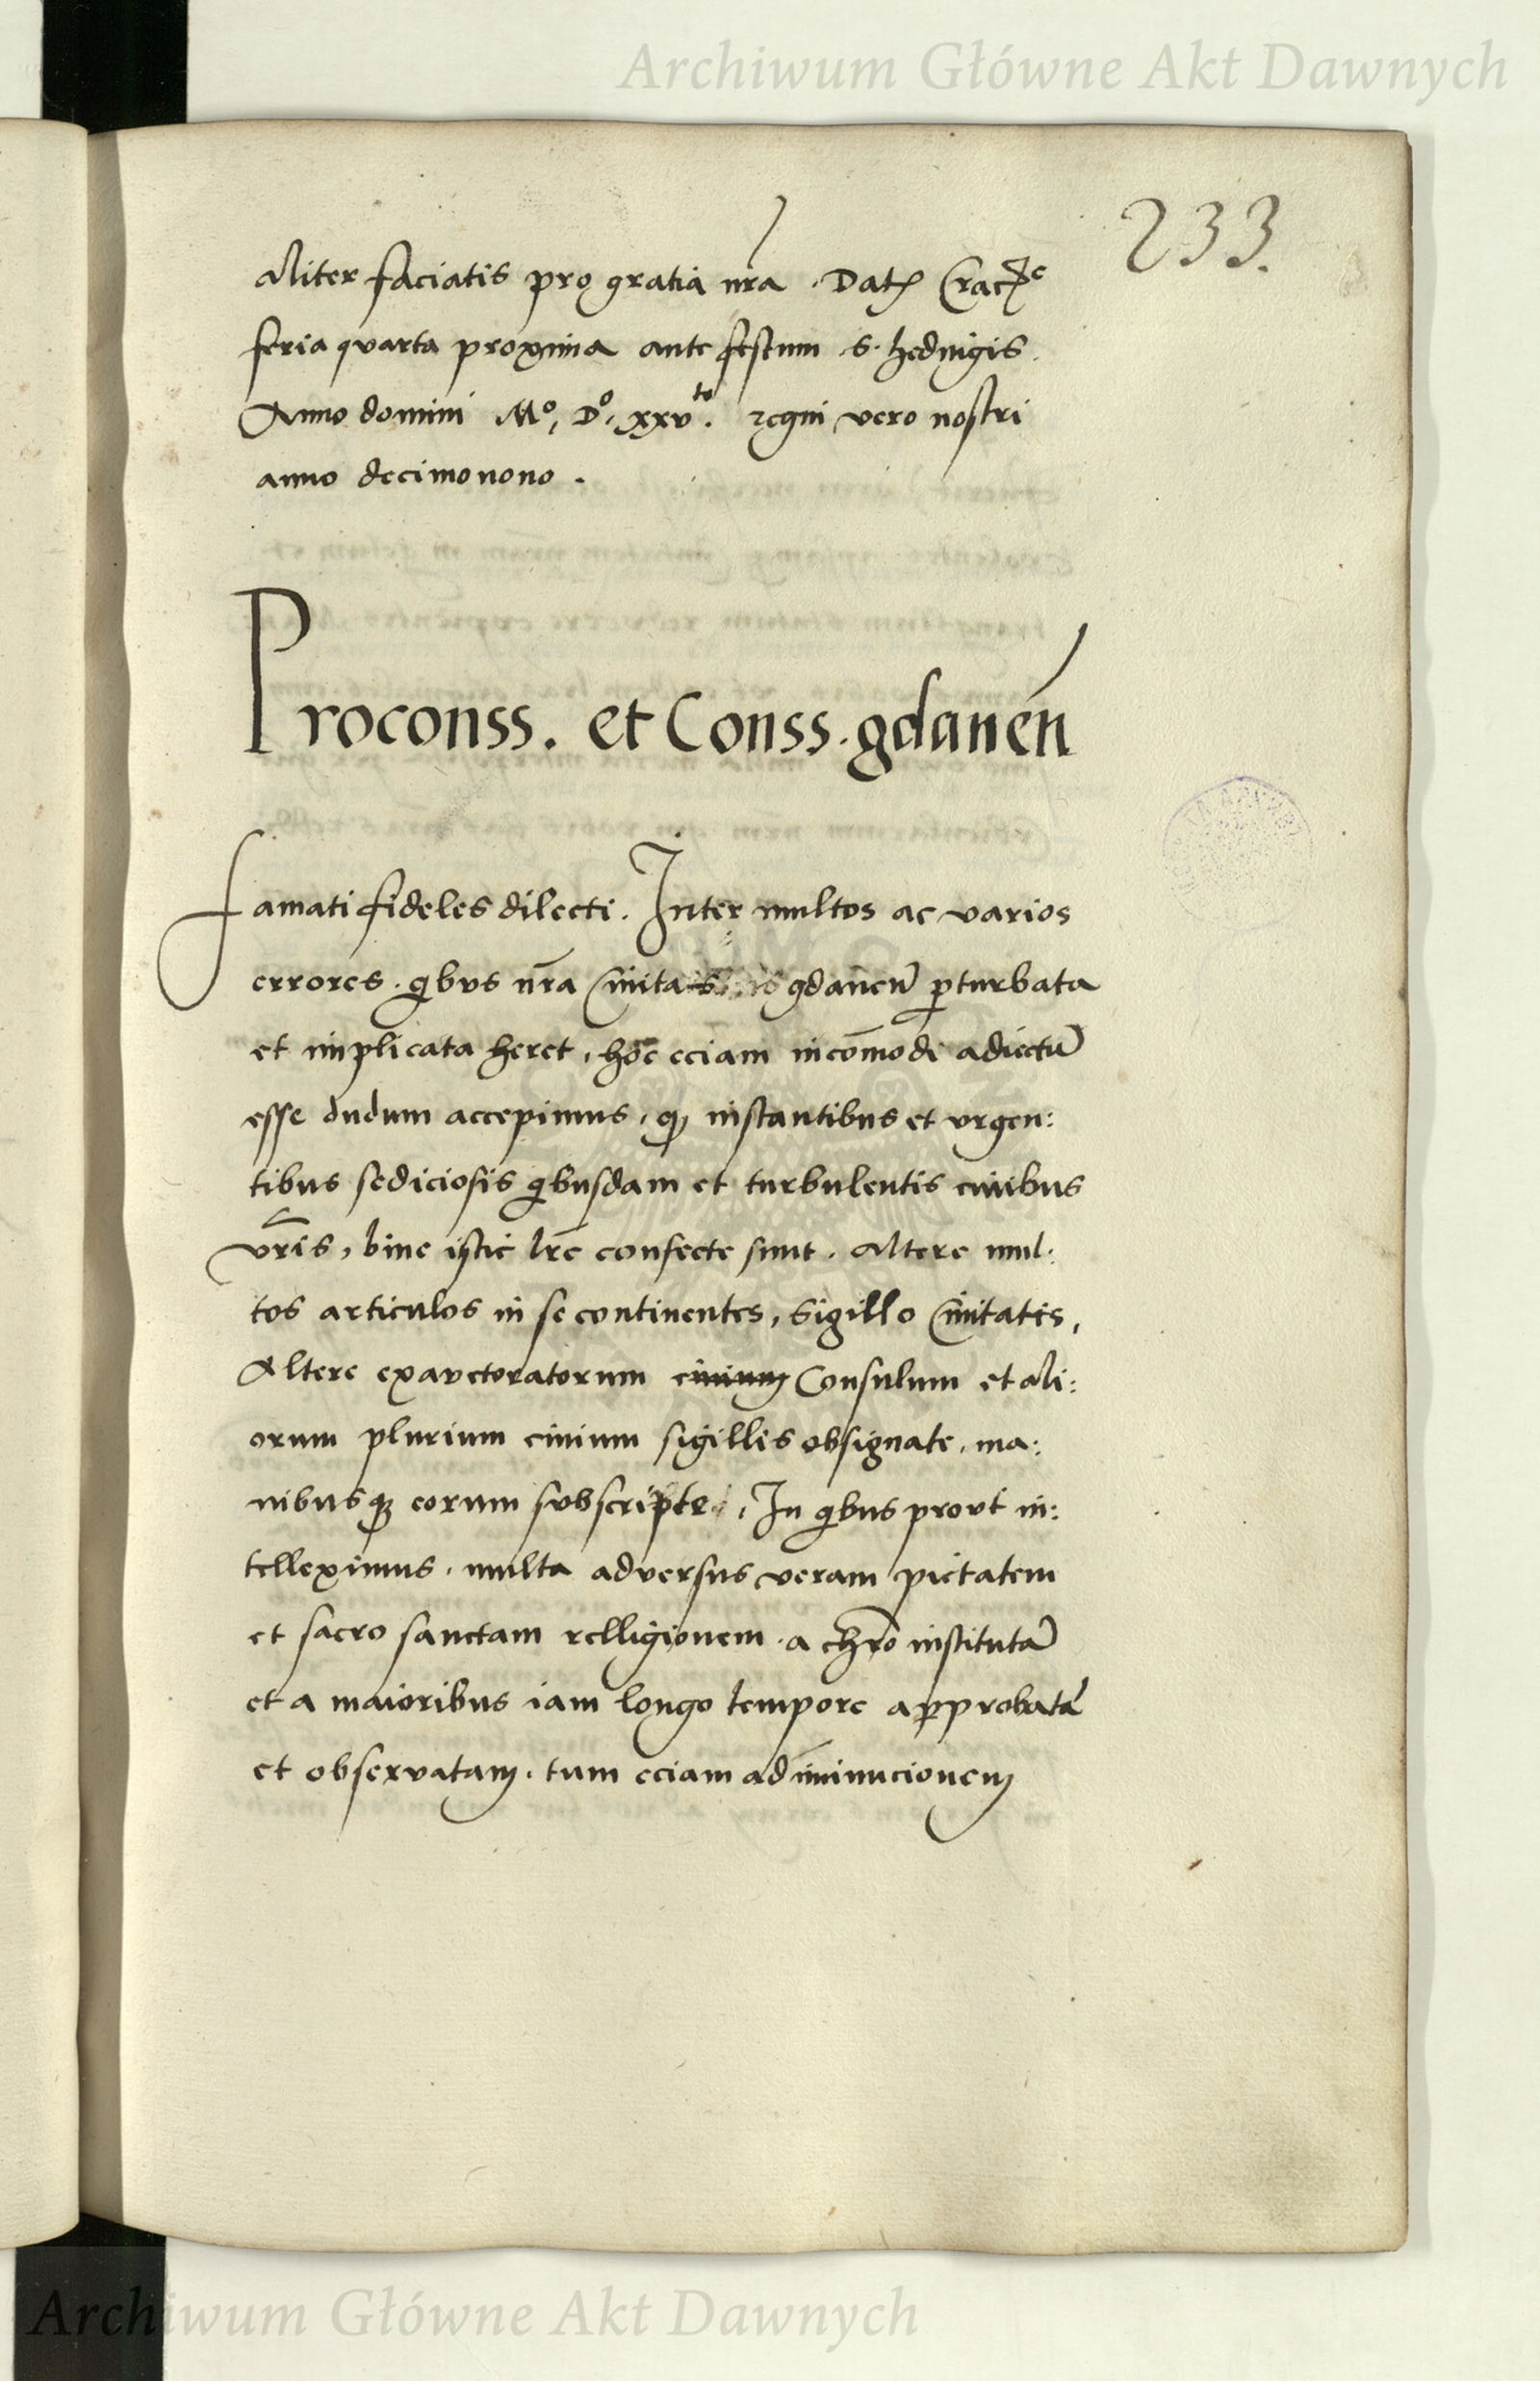 Archiwum Główne Akt Dawnych
233.
aliter faciatis pro gratia nr̄a . Dat Crac̄e
feria quarta proxima ante festum S. hedvigis.
Anno domini Mº, Dº, xxvᵗᵒ. regni vero nostri
anno decimonono .
Proconss. et Conss. gdaneń
Famati fideles dilecti. Inter multos ac varios
errores . qibus nr̄a Civitas gdanen̄ ꝑturbata
et implicata heret, hoc eciam incōmodi adiectū
esse dudum accepimus, ꝙ instantibus et vrgen:
tibus sediciosis qibusdam et turbulentis civibus
vr̄is, bine istic lr̄e confecte sunt. Altere mul:
tos articulos in se continentes, Sigillo Civitatis,
Altere exavctoratorum civium Consulum et ali:
orum plurium civium sigillis obsignate, ma:
nibusqꝫ eorum svbscripte, In qibus provt in:
telleximus, multa adversus veram pietatem
et sacro sanctam relligionem a chr̄o institutā
et a maioribus iam longo tempore approbatā
et observatam, tum eciam ad iminucionem
Archiwum Główne Akt Dawnych